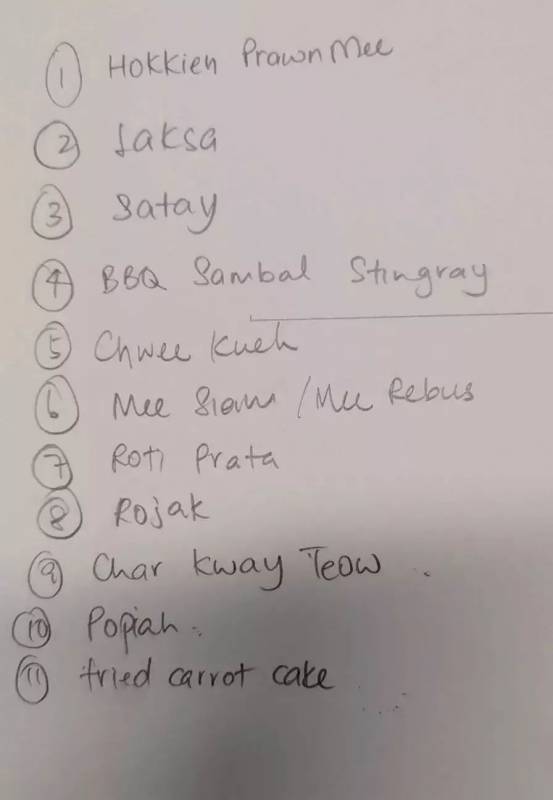 1 Hokkien Prawn Mee
2 Laksa
3 Satay
4 BBQ Sambal Stingray
5 Chwee Kueh
6 Mee Siam / Mee Rebus
7 Roti Prata
8 Rojak
9 Char Kway Teow .
10 Popiah .
11 fried carrot cake